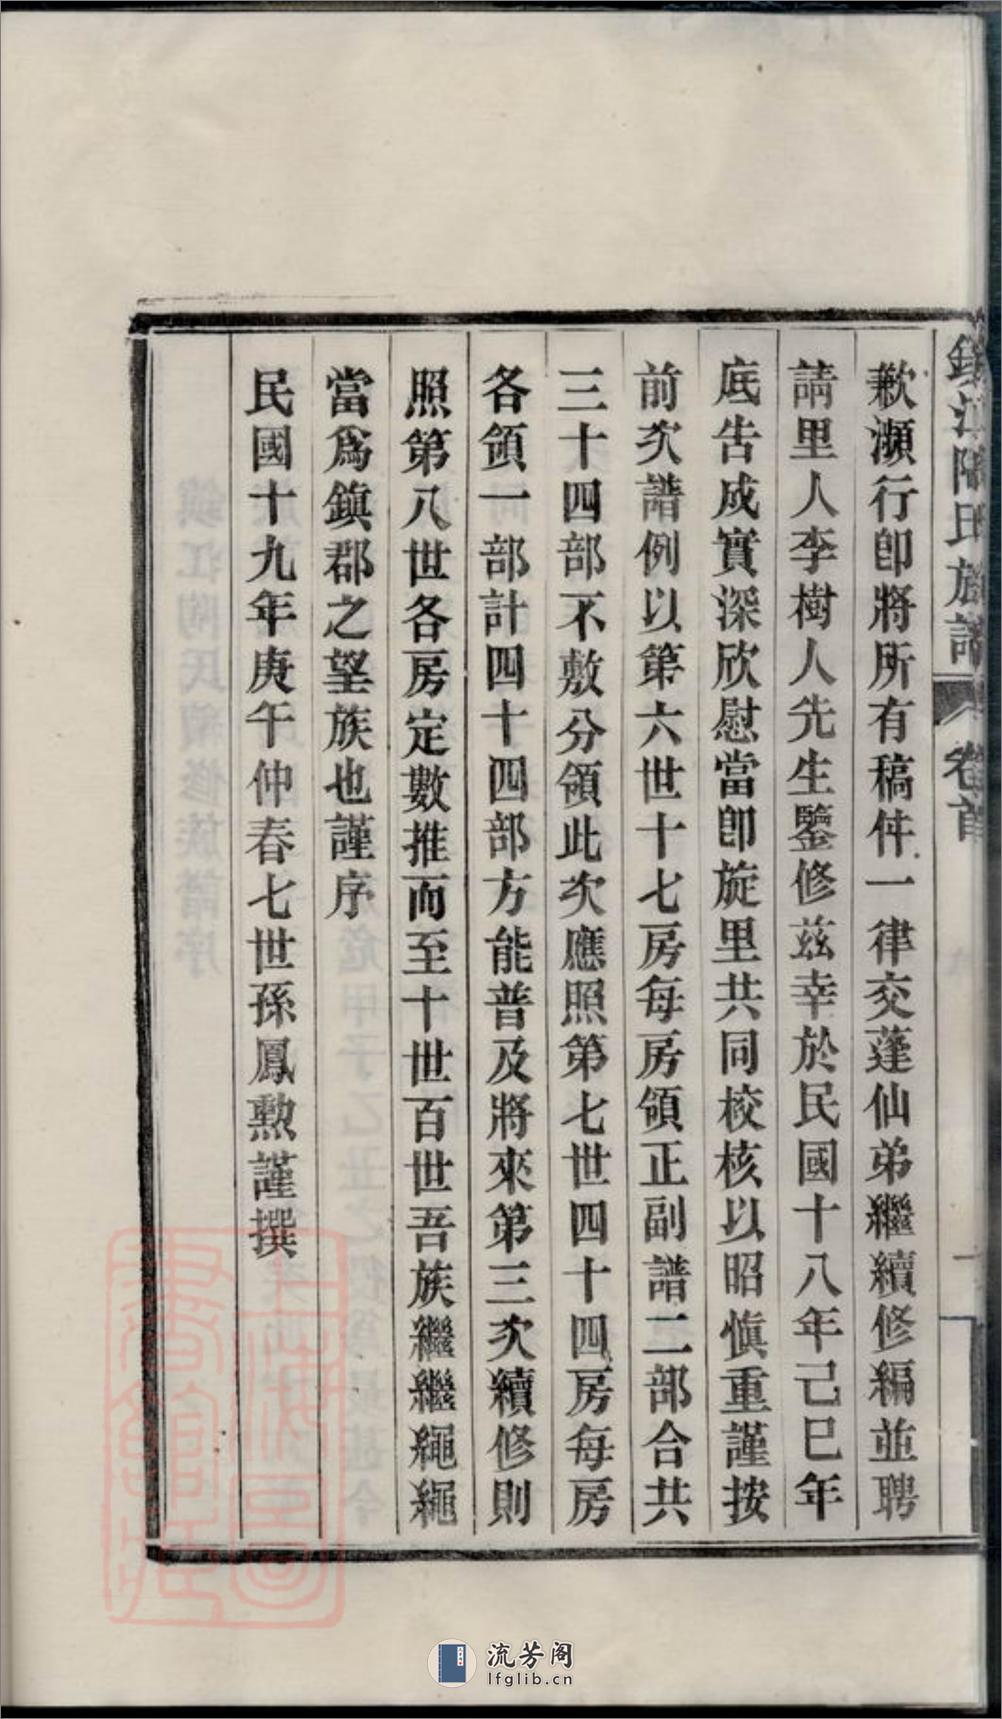 鎮江陶氏族譜 卷首 一
歉瀕行卽將所有稿件一律交蓬仙弟繼續修編並聘
請里人李樹人先生鑒修茲幸於民國十八年己巳年
底告成實深欣慰當卽旋里共同校核以昭愼重謹按
前次譜例以第六世十七房每房領正副譜二部合共
三十四部不敷分領此次應照第七世四十四房每房
各領一部計四十四部方能普及將來第三次續修則
照第八世各房定數推而至十世百世吾族繼繼繩繩
當爲鎮郡之望族也謹序
民國十九年庚午仲春七世孫鳳勲謹撰
上海圖書館藏
流芳阁
lfglib.cn